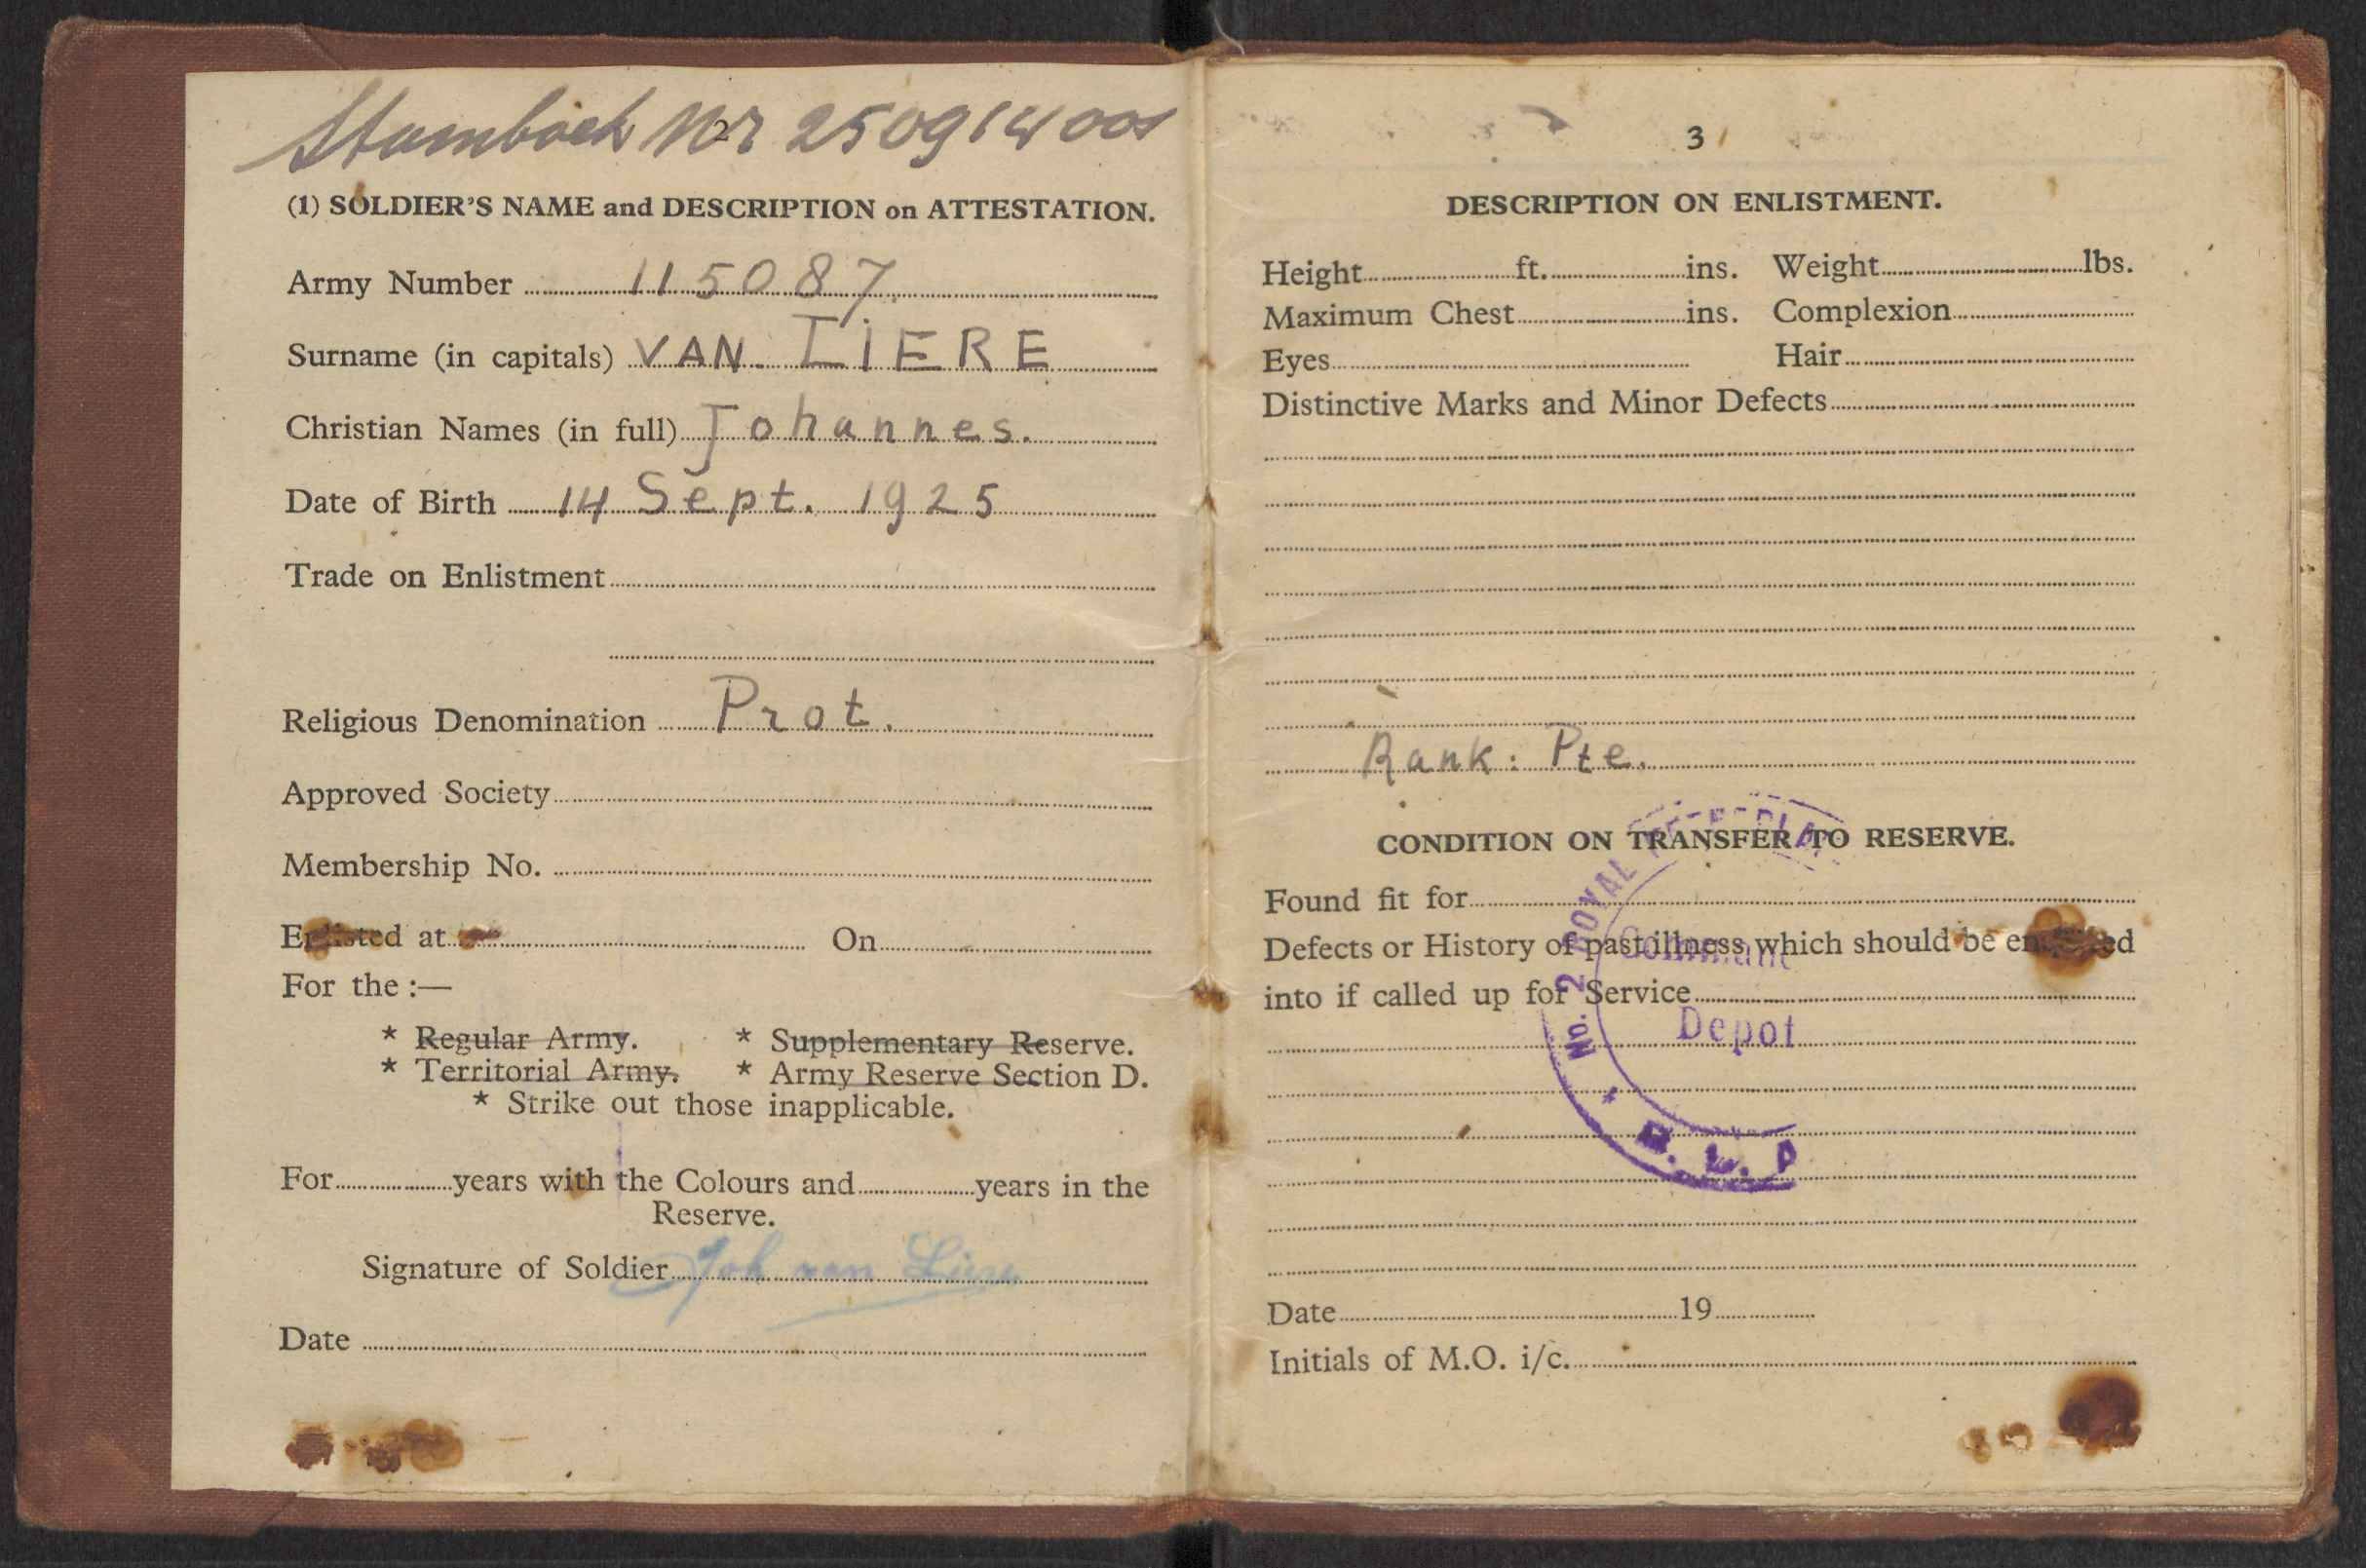 Stamboek Nr 250914001
2
(1) SOLDIER'S NAME and DESCRIPTION on ATTESTATION.
Army Number 115087.
Surname (in capitals) VAN LIERE
Christian Names (in full) Johannes.
Date of Birth 14 Sept. 1925
Trade on Enlistment
Religious Denomination Prot.
Approved Society
Membership No.
Enlisted at On
For the :—
* Regular Army. * Supplementary Reserve.
* Territorial Army. * Army Reserve Section D.
* Strike out those inapplicable.
For years with the Colours and years in the
Reserve.
Signature of Soldier Joh van Liere
Date
3
DESCRIPTION ON ENLISTMENT.
Height ft. ins. Weight lbs.
Maximum Chest ins. Complexion
Eyes Hair
Distinctive Marks and Minor Defects
Rank: Pte.
CONDITION ON TRANSFER TO RESERVE.
Found fit for
Defects or History of past illness which should be enquired
into if called up for Service
No. 2 ROYAL
Depot
Date 19
Initials of M.O. i/c.